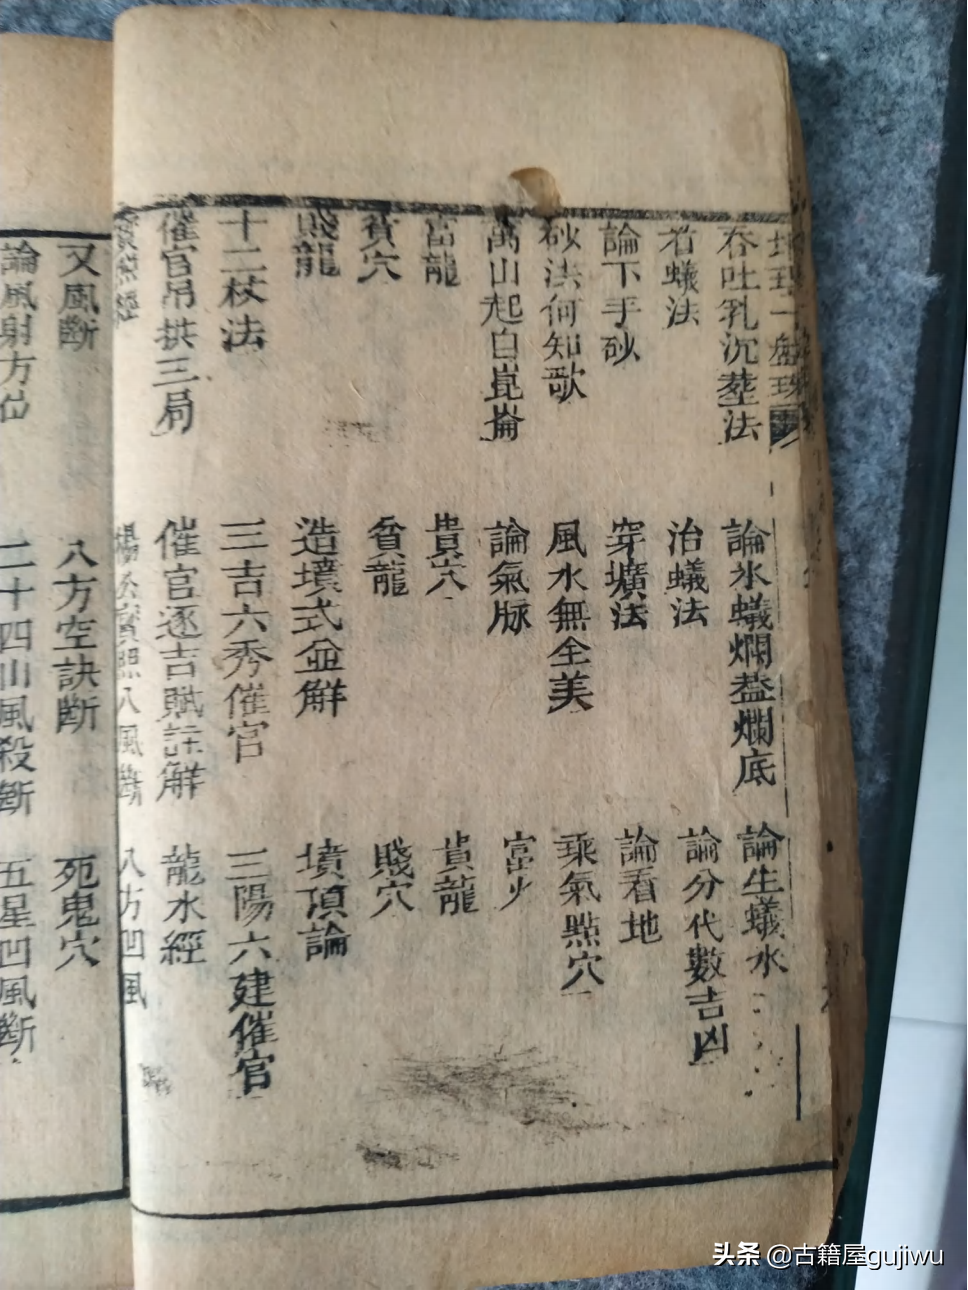 吞吐乳沉塟法 論氷蟻爛盖爛底 論生蟻水
看蟻法 治蟻法 論分代數吉凶
論下手砂 穿壙法 論看地
砂法何知歌 風水無全美 乘氣點穴
萬山起自崑崙 論氣脉 富火
富龍 貴穴 貴龍
貧穴 貧龍 賤穴
賤龍 造墳式並觧 墳頂論
十二杖法 三吉六秀催官 三陽六建催官
催官吊拱三局 催官逐吉賦註觧 龍水經
寳照經 楊公寳照八風斷 八方凹風
又風斷 八方空訣斷 死鬼穴
論風射方位 二十四山風殺斷 五星凹風斷
头条 @古籍屋gujiwu